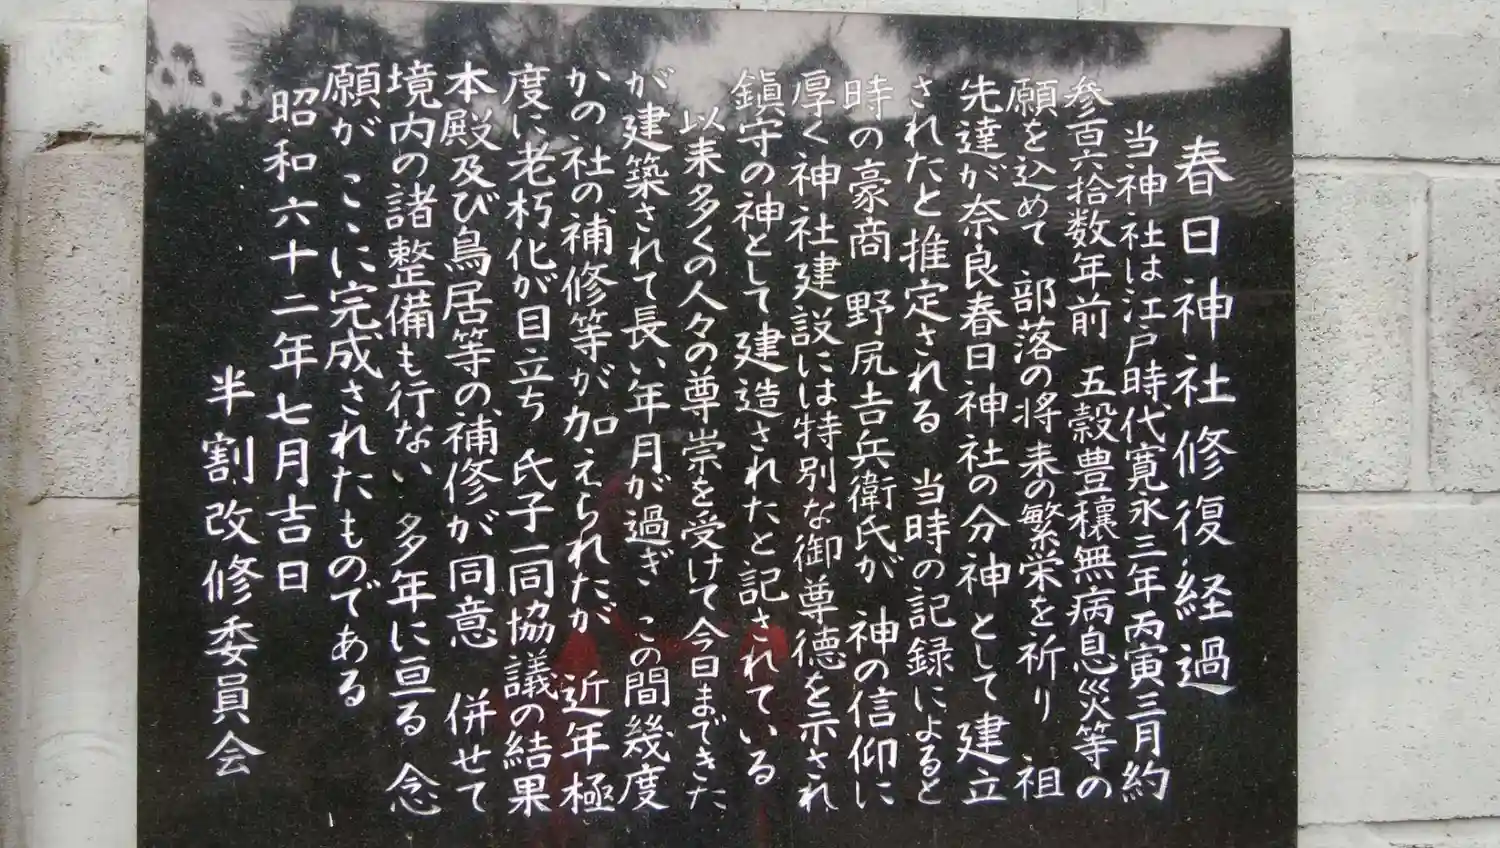 春日神社修復経過
当神社は江戸時代寛永三年丙寅三月約
参百六拾数年前　五穀豊穰無病息災等の
願を込めて　部落の将来の繁栄を祈り　祖
先達が奈良春日神社の分神として建立
されたと推定される　当時の記録によると
時の豪商　野尻吉兵衛氏が　神の信仰に
厚く神社建設には特別な御尊徳を示され
鎮守の神として建造されたと記されている
以来多くの人々の尊崇を受けて今日まできた
が建築されて長い年月が過ぎ　この間幾度
かの社の補修等が加えられたが　近年極
度に老朽化が目立ち　氏子一同協議の結果
本殿及び鳥居等の補修が同意　併せて
境内の諸整備も行ない　多年に亘る　念
願が　ここに完成されたものである
昭和六十二年七月吉日
半割改修委員会